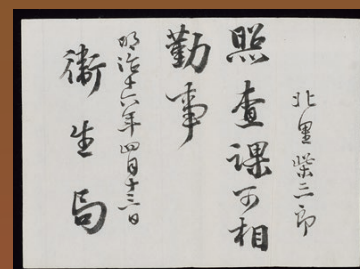 北里柴三郎
照査課可相
勤事
明治十六年四月十三日
衛生局